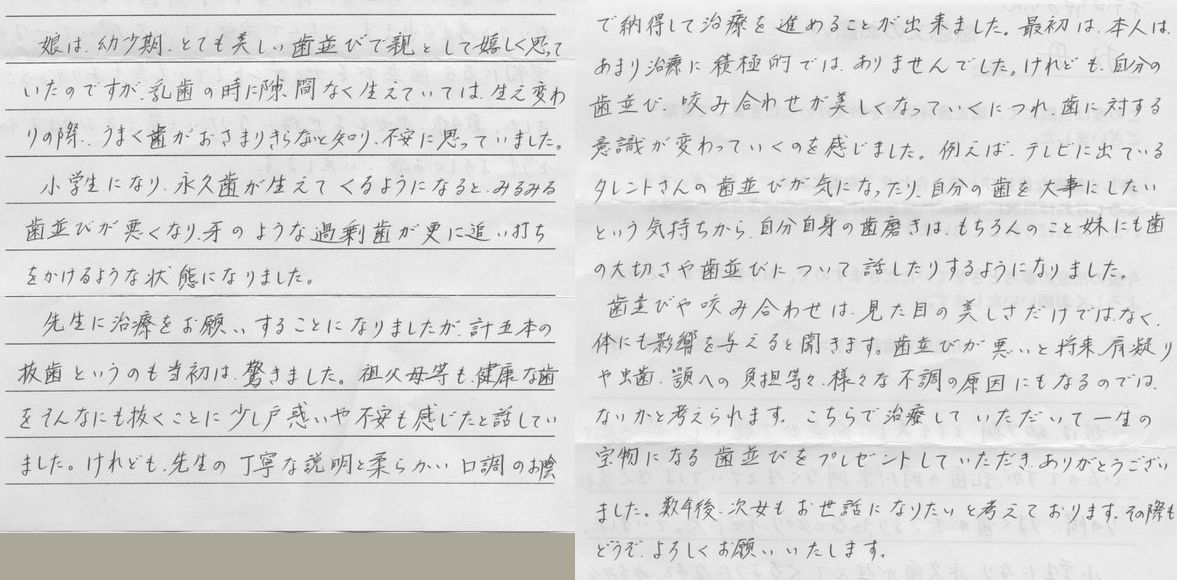 娘は、幼少期、とても美しい歯並びで親として嬉しく思って
いたのですが、乳歯の時に隙間なく生えていては、生え変わ
りの際、うまく歯がおさまりきらないと知り、不安に思っていました。
小学生になり、永久歯が生えてくるようになると、みるみる
歯並びが悪くなり、牙のような過剰歯が更に追い打ち
をかけるような状態になりました。
先生に治療をお願いすることになりましたが、計五本の
抜歯というのも当初は、驚きました。祖父母等も、健康な歯
をそんなにも抜くことに少し戸惑いや不安も感じたと話してい
ました。けれども、先生の丁寧な説明と柔らかい口調のお陰
で納得して治療を進めることが出来ました。最初は、本人は、
あまり治療に積極的では、ありませんでした。けれども、自分の
歯並び、咬み合わせが美しくなっていくにつれ、歯に対する
意識が変わっていくのを感じました。例えば、テレビに出ている
タレントさんの歯並びが気になったり、自分の歯を大事にしたい
という気持ちから、自分自身の歯磨きは、もちろんのこと妹にも歯
の大切さや歯並びについて話したりするようになりました。
歯並びや咬み合わせは、見た目の美しさだけではなく、
体にも影響を与えると聞きます。歯並びが悪いと将来、肩凝り
や虫歯、顎への負担等々、様々な不調の原因にもなるのでは、
ないかと考えられます。こちらで治療していただいて一生の
宝物になる歯並びをプレゼントしていただき、ありがとうござい
ました。数年後、次女もお世話になりたいと考えております。その際も
どうぞ、よろしくお願いいたします。